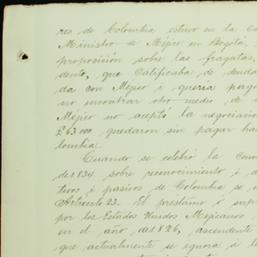 res de Colombia estuvo en la ca
Ministro de Méjico en Bogotá,
proposicion sobre las fragatas,
dento, que calificaba de duda
da con Mejico i queria pag
no encontrar otro medio, de
Mejico no aceptó la negociacion
£63.000 quedaron sin pagar ha
lombia.
Cuando se celebró la Conv
de 1834 sobre reconocimiento i d
tivos i pasivos de Colombia se
Artículo 23. El préstamo i sup
por los Estados Unidos Mejicanos
en el año, de 1826, ascendente
que actualmente se ignora i l